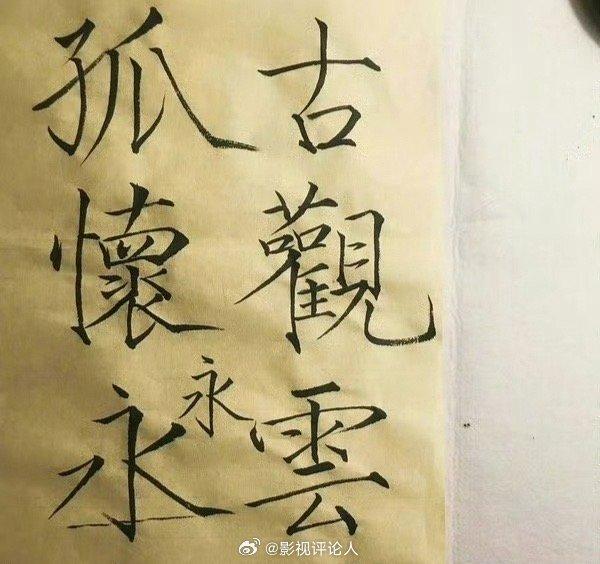 古觀雲
孤懷永
永
@影视评论人